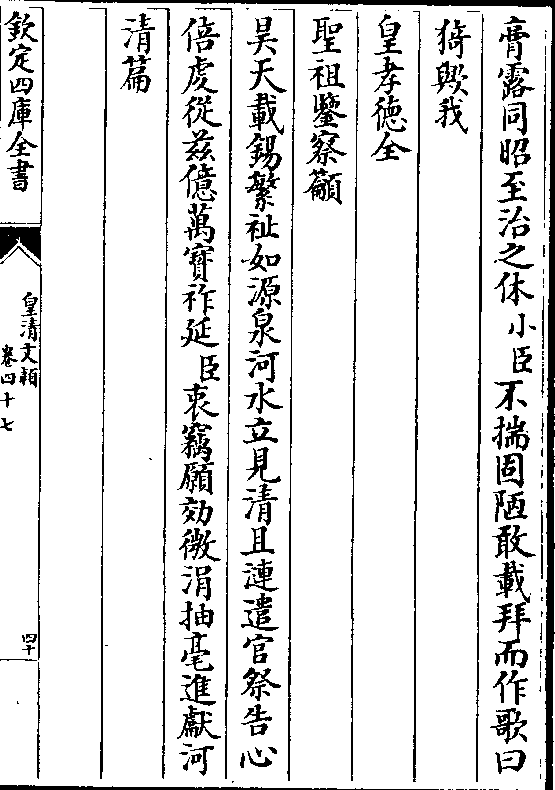 膏露同昭至治之休小臣不揣固陋敢載拜而作歌曰
猗歟我
皇孝德全
聖祖鑒察籲
昊天載錫繁祉如源泉河水立見清且漣遣官祭告心
倍虔從茲億萬寶祚延臣衷竊願効微涓抽毫進獻河
清篇
欽定四庫全書
皇清文頴
卷四十七
四十